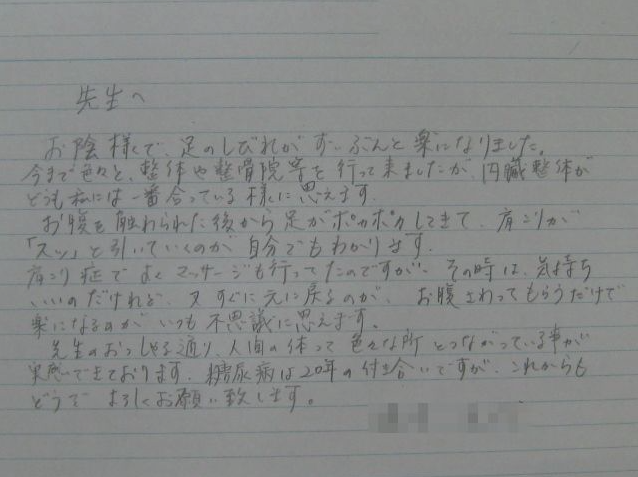 先生へ
お陰様で、足のしびれがずいぶんと楽になりました。
今まで色々と、整体や整骨院等を行って来ましたが、内臓整体が
どうも私には一番合っている様に思えます。
お腹を触わられた後から足がポカポカしてきて、肩こりが
「スッ」と引いていくのが自分でもわかります。
肩こり症でよくマッサージも行ってたのですが、その時は、気持ち
いいのだけれど、又すぐに元に戻るのが、お腹さわってもらうだけで
楽になるのがいつも不思議に思えます。
先生のおっしゃる通り、人間の体って色々な所とつながっている事が
実感できております。糖尿病は20年の付き合いですが、これからも
どうぞよろしくお願い致します。